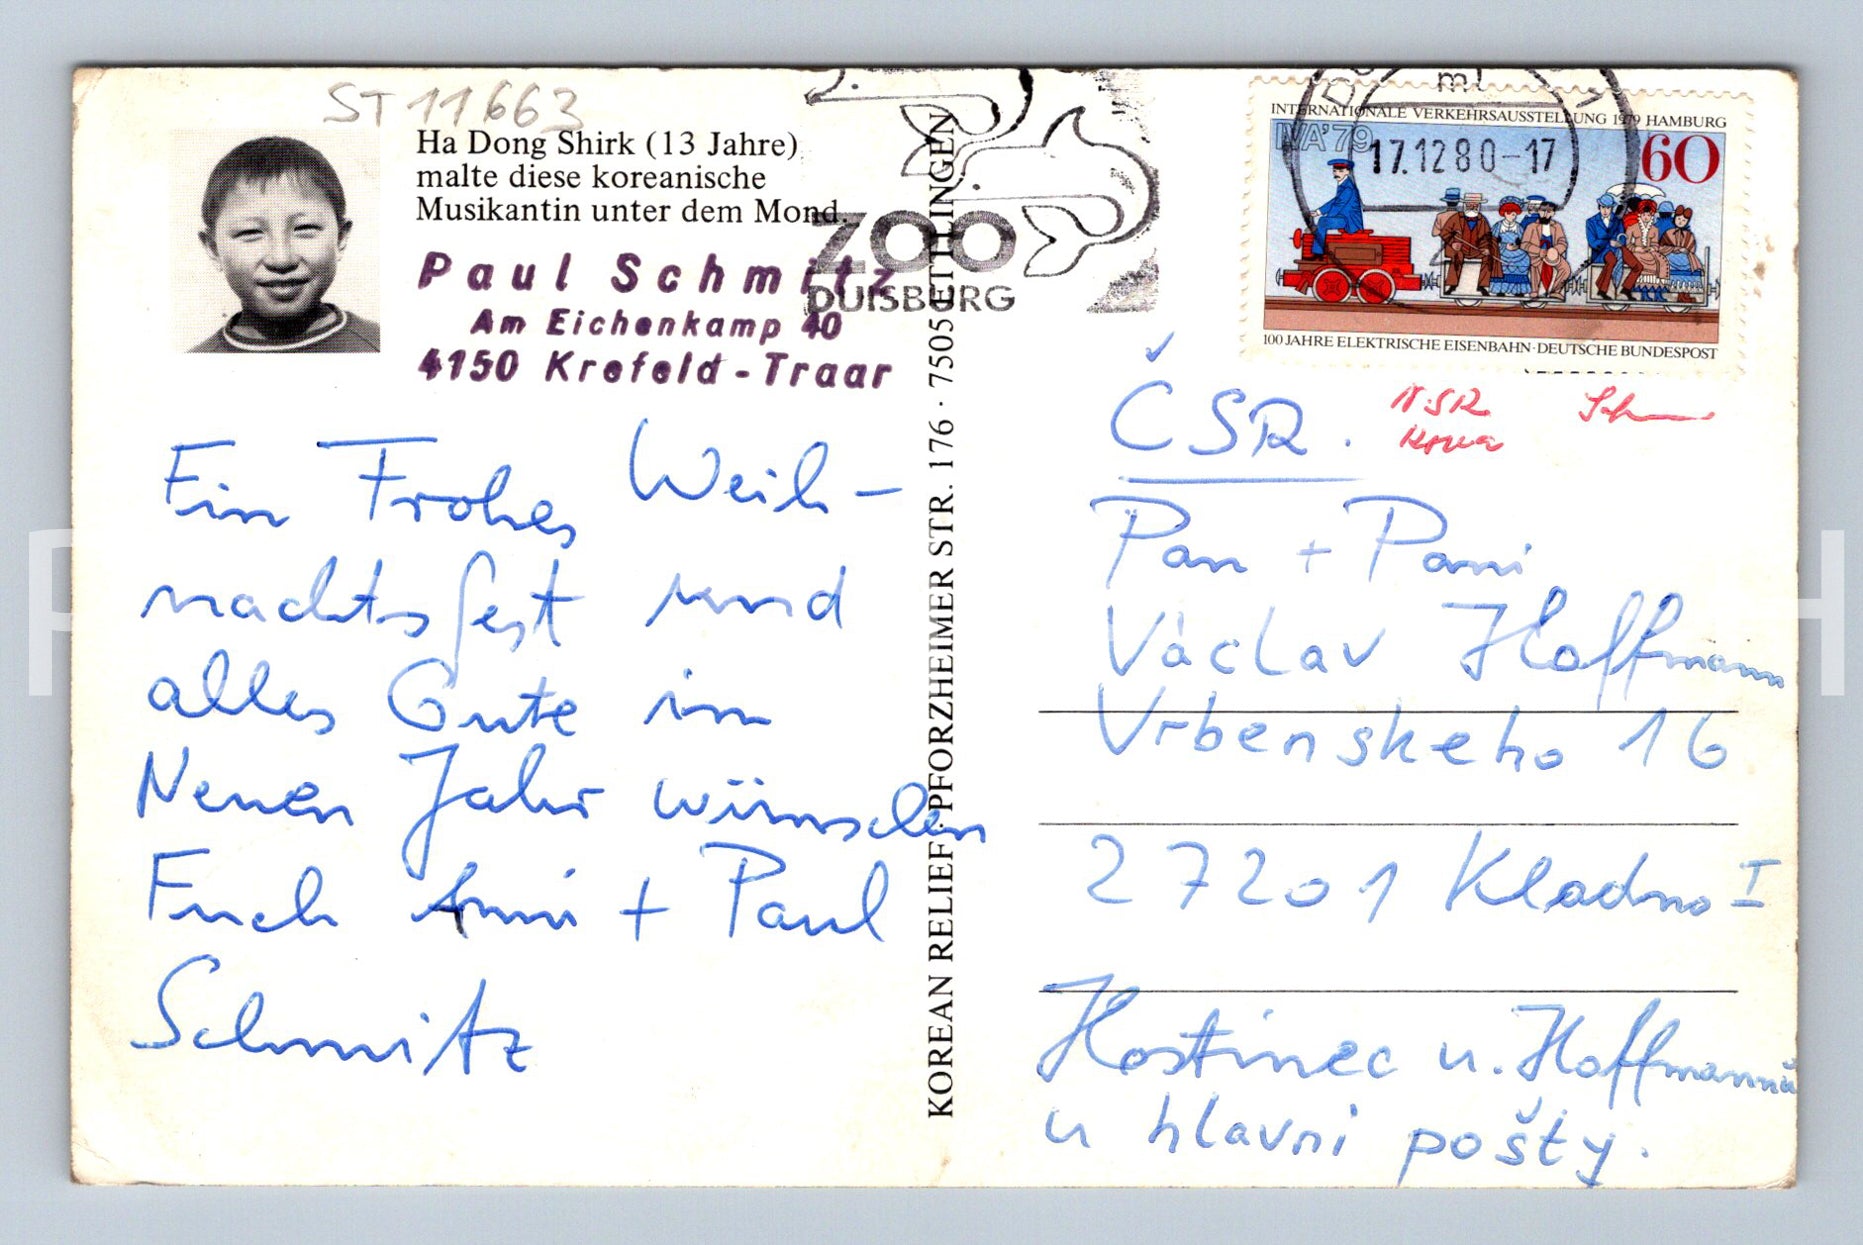 ST 11663
Ha Dong Shirk (13 Jahre)
malte diese koreanische
Musikantin unter dem Mond.
Paul Schmitz
Am Eichenkamp 40
4150 Krefeld-Traar
ZOO
DUISBURG
INTERNATIONALE VERKEHRSAUSSTELLUNG 1979 HAMBURG
IVA'79
60
17.12.80-17
100 JAHRE ELEKTRISCHE EISENBAHN·DEUTSCHE BUNDESPOST
Ein Frohes Weih-
nachtsfest und
alles Gute im
Neuen Jahr wünschen
Euch Anni + Paul
Schmitz
KOREAN RELIEF · PFORZHEIMER STR. 176 · 7505 ETTLINGEN
ČSR.
Pan + Pani
Václav Hoffmann
Vrbenskeho 16
27201 Kladno I
Hostinec u. Hoffmannů
u hlavni pošty.